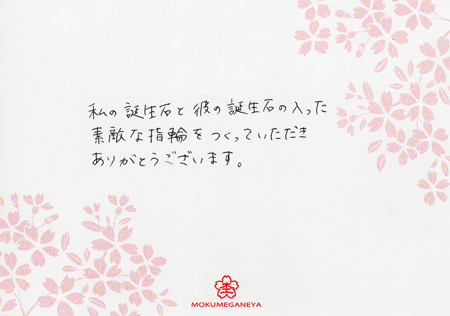 私の誕生石と彼の誕生石の入った
素敵な指輪をつくっていただき
ありがとうございます。
MOKUMEGANEYA